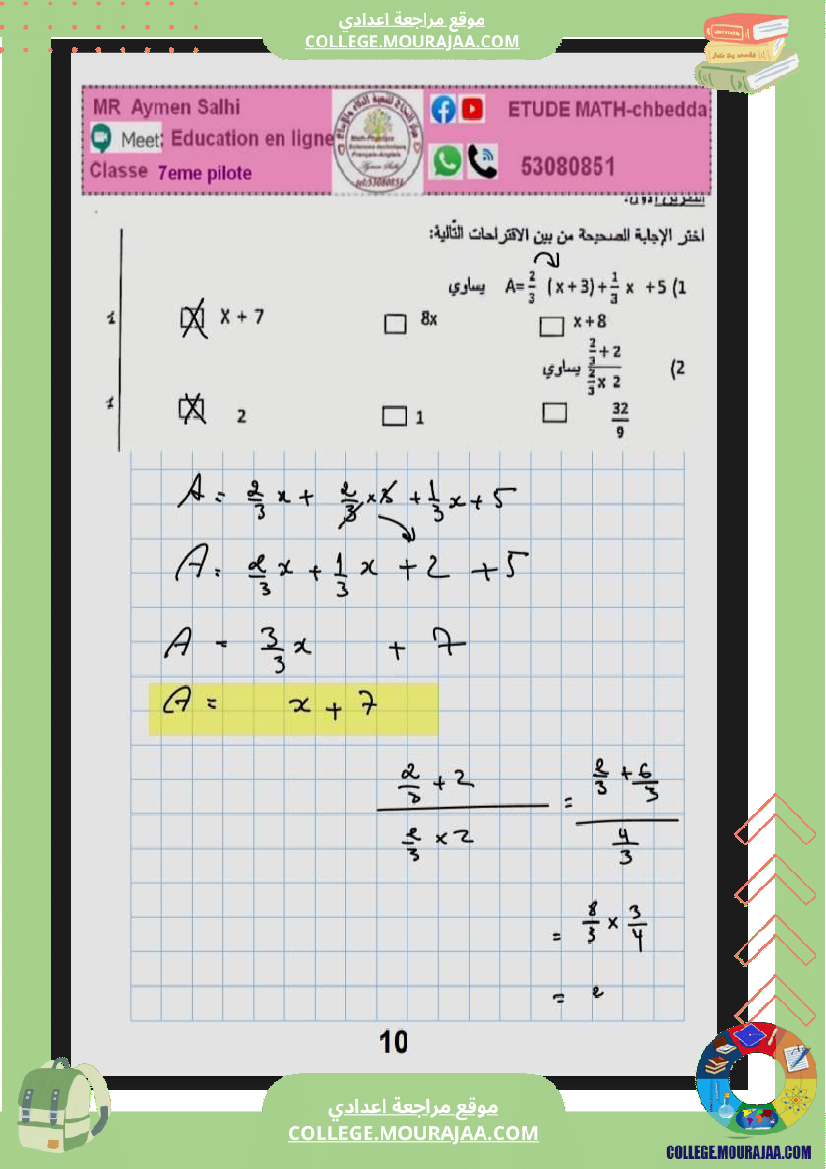 موقع مراجعة اعدادي
COLLEGE.MOURAJAA.COM
MR Aymen Salhi
Meet: Education en ligne
Classe 7eme pilote
ETUDE MATH-chbedda
53080851
اختر الإجابة الصحيحة من بين الاقتراحات التّالية:
1) A=2/3 (x+3)+1/3 x +5 يساوي
1
X + 7
8x
x+8
2) (2/3+2)/(2/3 x 2) يساوي
1
2
1
32/9
A = 2/3 x + 2/3 × 3 + 1/3 x + 5
A = 2/3 x + 1/3 x + 2 + 5
A = 3/3 x + 7
A = x + 7
(2/3 + 2)/(2/3 × 2) = (2/3 + 6/3)/(4/3)
= 8/3 × 3/4
= 2
10
موقع مراجعة اعدادي
COLLEGE.MOURAJAA.COM
COLLEGE.MOURAJAA.COM